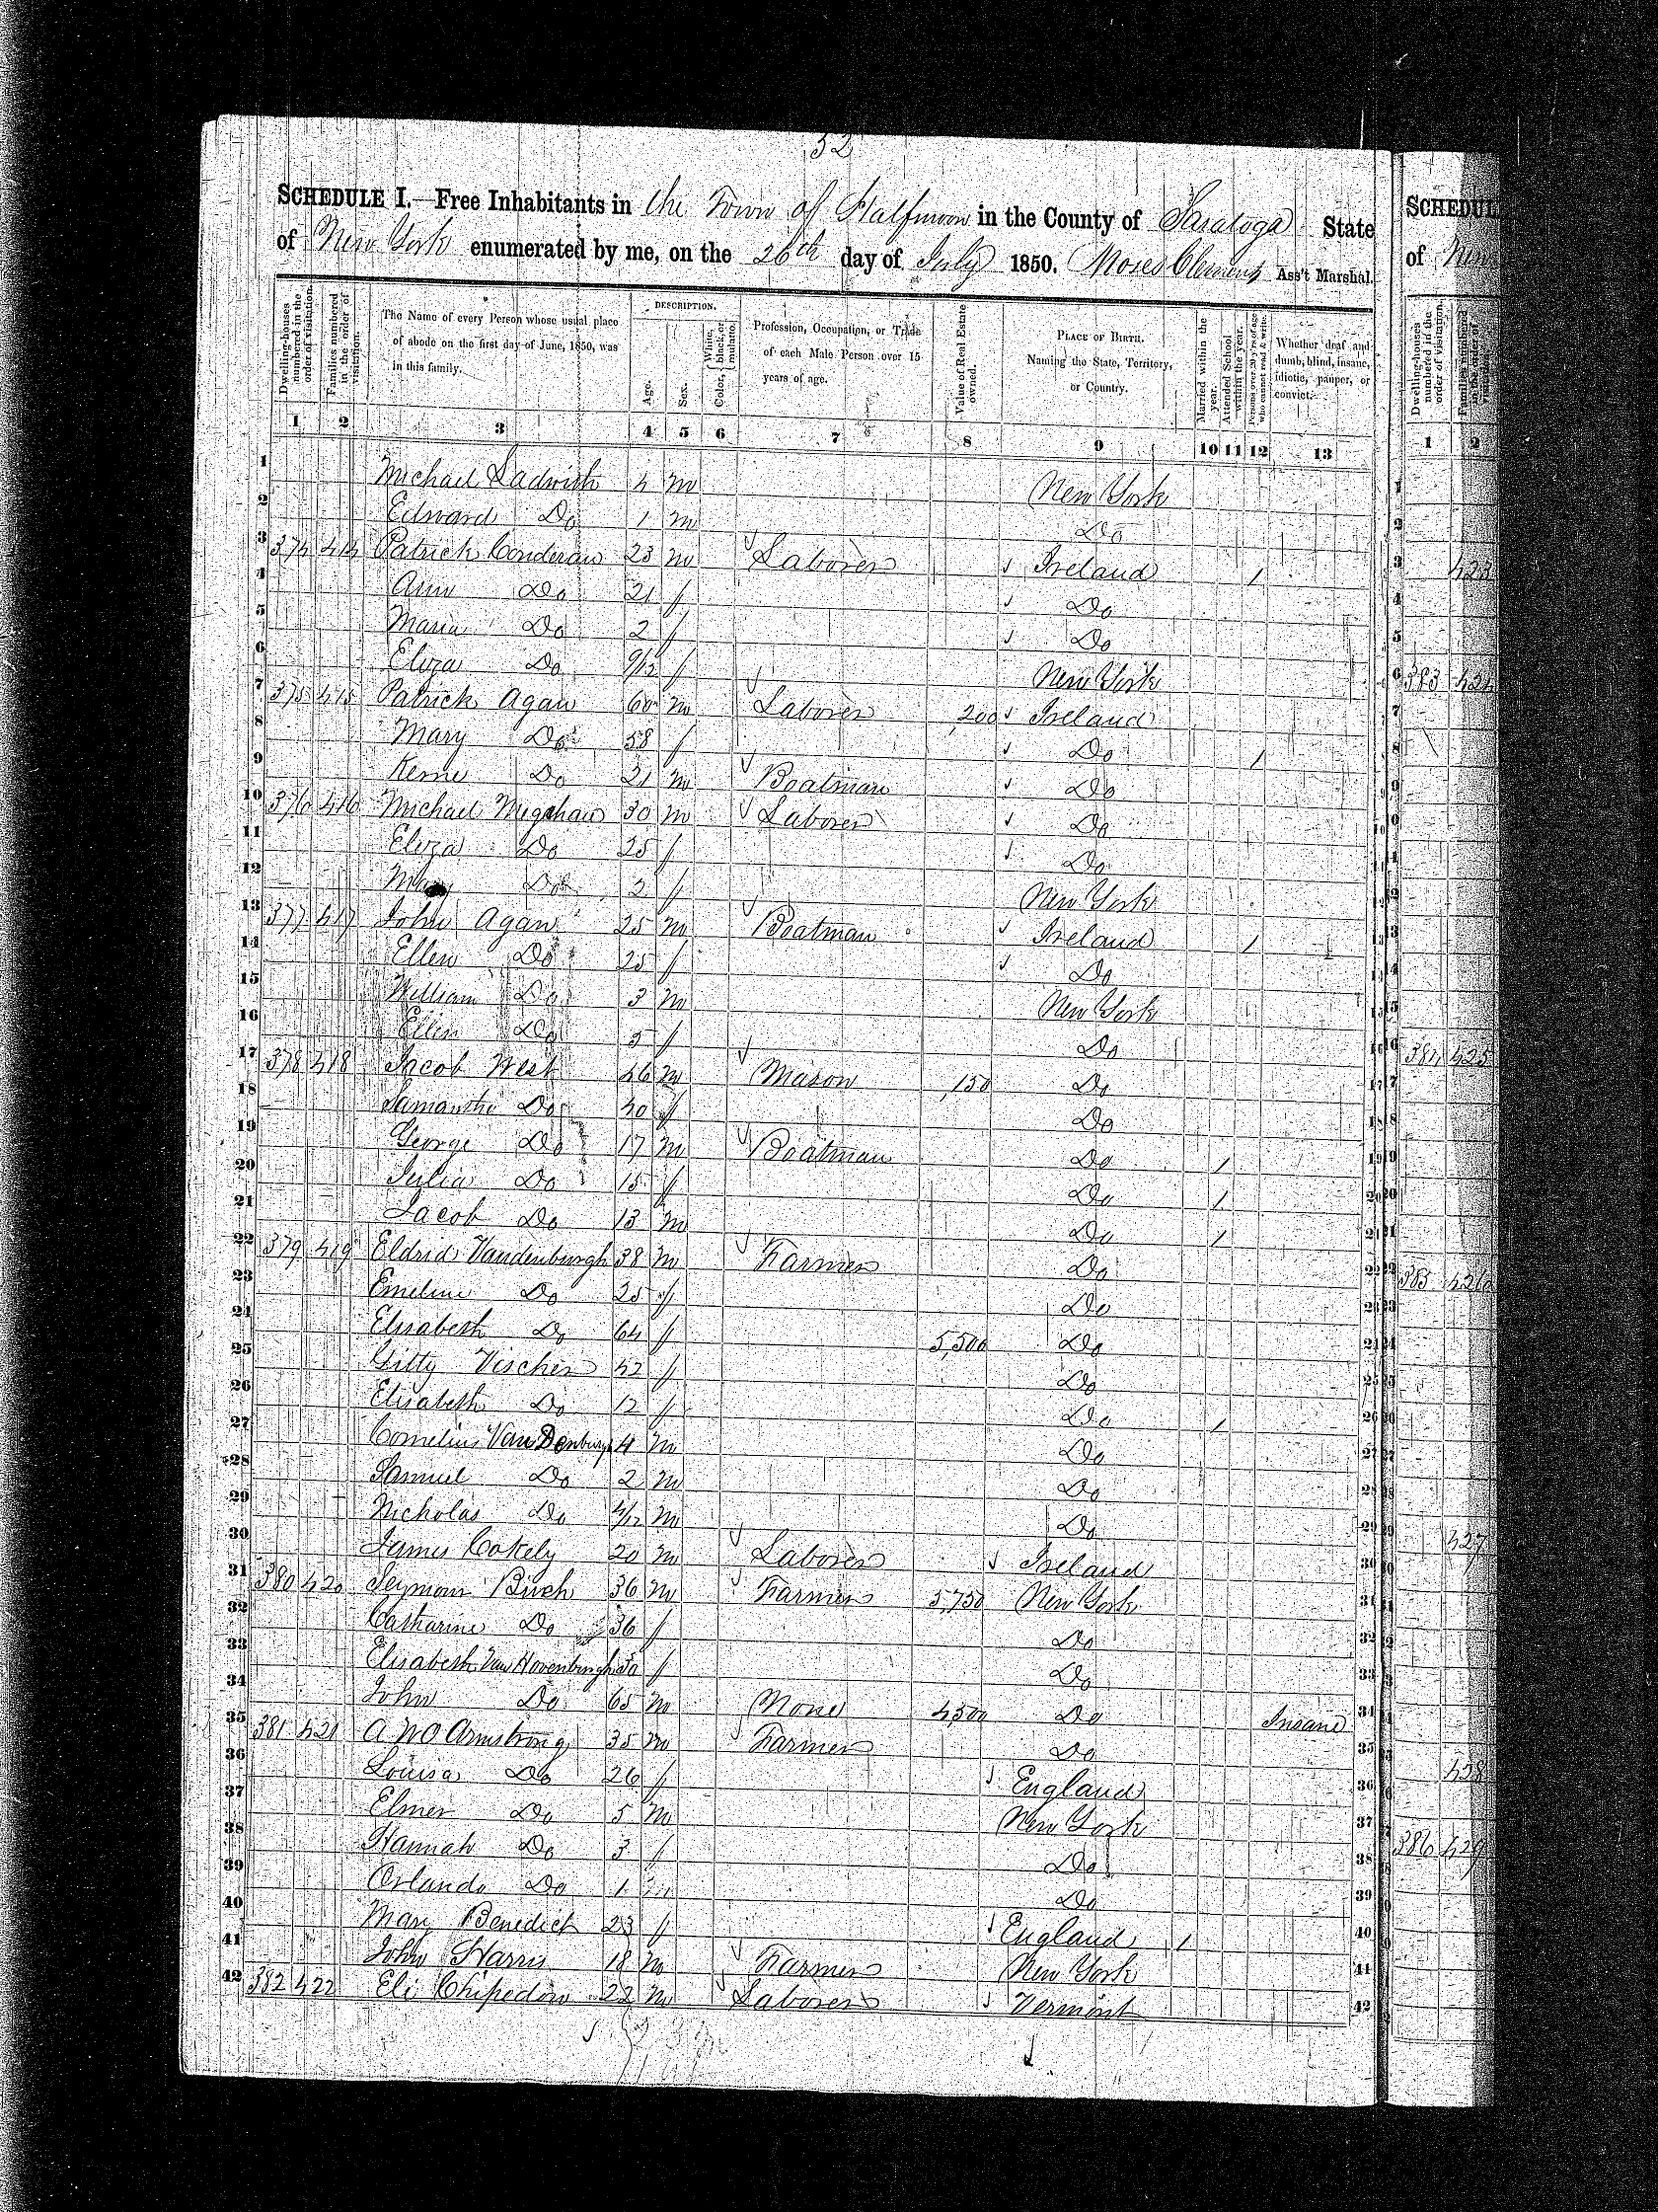 52
SCHEDULE I.—Free Inhabitants in the Town of Halfmoon in the County of Saratoga State
of New York enumerated by me, on the 26th day of July 1850. Moses Clement Ass't Marshal.
Dwelling-houses numbered in the order of visitation.
Families numbered in the order of visitation.
The Name of every Person whose usual place of abode on the first day of June, 1850, was in this family.
DESCRIPTION.
Age.
Sex.
Color, White, black, or mulatto.
Profession, Occupation, or Trade of each Male Person over 15 years of age.
Value of Real Estate owned.
PLACE OF BIRTH. Naming the State, Territory, or Country.
Married within the year.
Attended School within the year.
Persons over 20 y'rs of age who cannot read & write.
Whether deaf and dumb, blind, insane, idiotic, pauper, or convict.
1 2 3 4 5 6 7 8 9 10 11 12 13
1 Michael 4 m New York
2 Edward Do 1 m Do
3 374 414 Patrick Conderan 23 m Laborer Ireland /
4 Ann Do 21 f Do
5 Maria Do 2 f Do
6 Eliza Do 9/12 f New York
7 375 415 Patrick Agan 60 m Laborer 200 Ireland
8 Mary Do 58 f Do /
9 Kerne Do 21 m Boatman Do
10 376 416 Michael Megahan 30 m Laborer Do
11 Eliza Do 25 f Do
12 Mary Do 2 f New York
13 377 417 John Agan 25 m Boatman Ireland /
14 Ellen Do 25 f Do
15 William Do 3 m New York
16 Ellen Do f Do
17 378 418 Jacob West 46 m Mason 150 Do
18 Samantha Do 40 f Do
19 George Do 17 m Boatman Do /
20 Julia Do 15 f Do /
21 Jacob Do 13 m Do /
22 379 419 Eldrid Vandenburgh 38 m Farmer Do
23 Emeline Do 25 f Do
24 Elisabeth Do 64 f 5,500 Do
25 Gitty Vischer 42 f Do
26 Elisabeth Do 12 f Do /
27 Cornelius Van Denburgh 4 m Do
28 Samuel Do 2 m Do
29 Nicholas Do 4/12 m Do
30 James Cokely 20 m Laborer Ireland
31 380 420 Seymour Birch 36 m Farmer 5,750 New York
32 Catharine Do 36 f Do
33 Elisabeth Van Hovenburgh 30 f Do
34 John Do 65 m None 4,500 Do Insane
35 381 421 A W O Armstrong 35 m Farmer Do
36 Louisa Do 26 f England
37 Elmer Do 5 m New York
38 Hannah Do 3 f Do
39 Orlando Do 1 m Do
40 Mary Benedict 23 f England /
41 John Harris 18 m Farmer New York
42 382 422 Eli Chipedow 22 m Laborer Vermont
SCHEDUL
of New
Dwelling-houses numbered in the order of visitation.
Families numbered in the order of visitation.
1 2
423
383 424
384 425
385 426
427
428
386 429